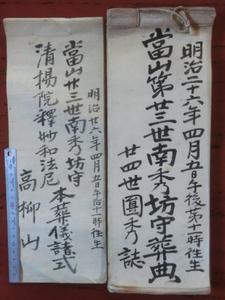 明治二十六年四月五日午後第十一時往生
當山第廿三世南秀坊守葬典
廿四世圓秀誌
明治廿六年四月五日午后十一時往生
當山廿三世南秀坊守
清揚院釋妙和法尼
本葬儀諸式
高柳山